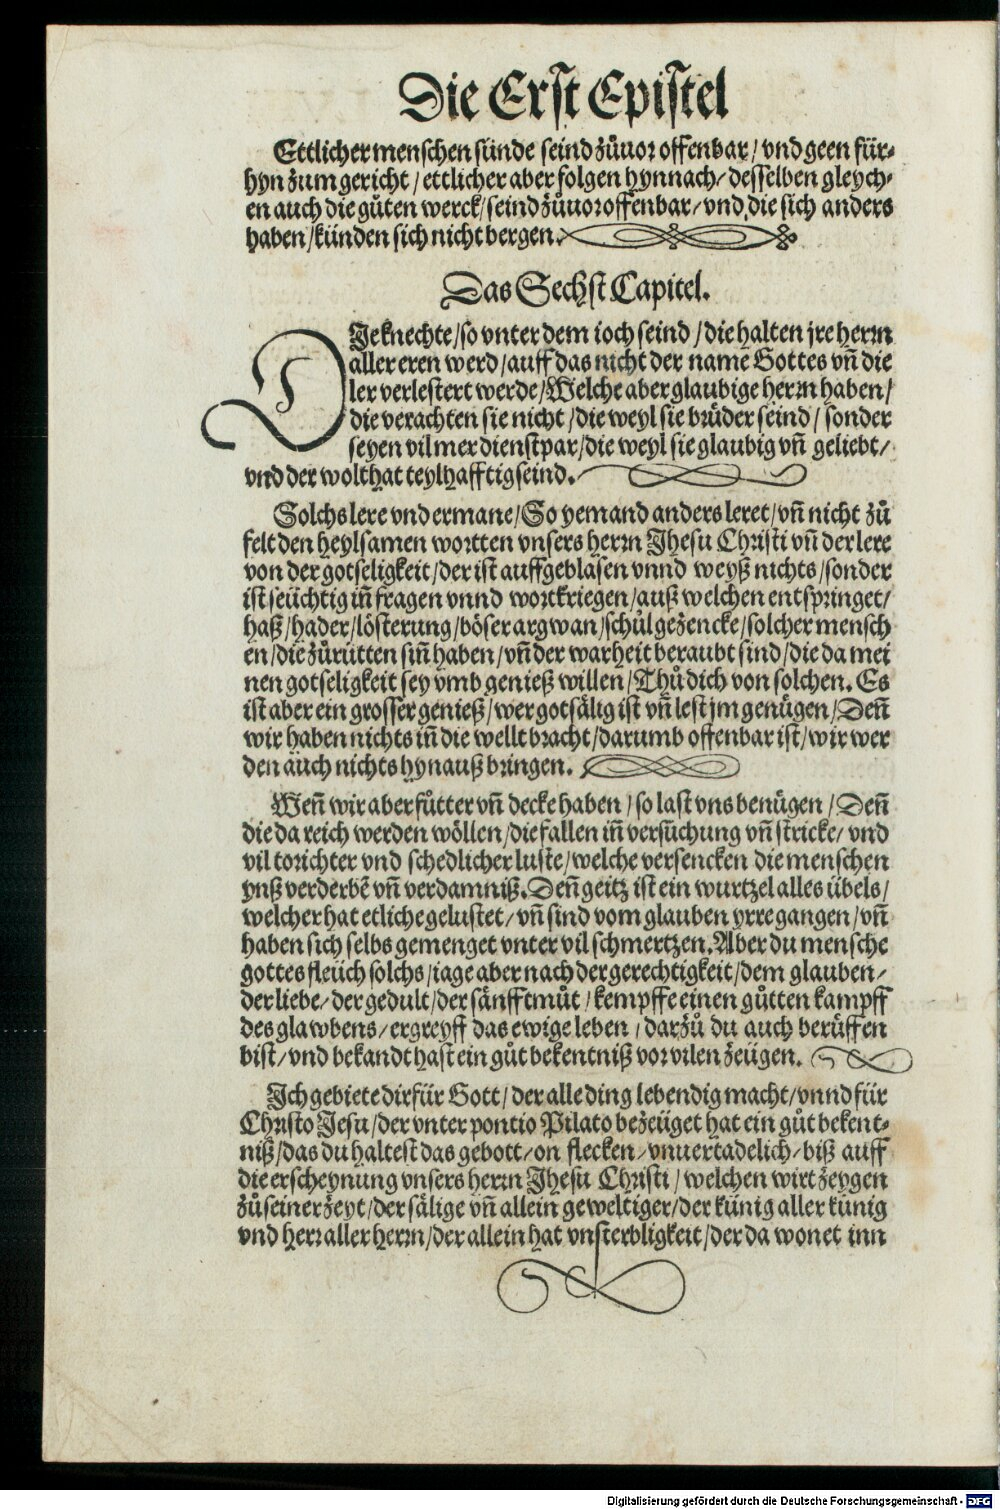 Die Erst Epistel
Ettlicher menschen sünde seind zůuor offenbar / vnd geen für-
hyn zum gericht / ettlicher aber folgen hynnach / desselben gleych-
en auch die gůten werck / seind zůuor offenbar / vnd die sich anders
haben / künden sich nicht bergen.
Das Sechst Capitel.
DIe knechte / so vnter dem ioch seind / die halten jre herrn
aller eren werd / auff das nicht der name Gottes vñ die
ler verlestert werde / Welche aber glaubige herrn haben /
die verachten sie nicht / die weyl sie brůder seind / sonder
seyen vil mer dienstpar / die weyl sie glaubig vñ geliebt /
vnd der wolthat teylhafftig seind.
Solchs lere vnd ermane / So yemand anders leret / vñ nicht zů
felt den heylsamen wortten vnsers herrn Jhesu Christi vñ der lere
von der gotseligkeit / der ist auffgeblasen vnnd weyß nichts / sonder
ist seüchtig iñ fragen vnnd wortkriegen / auß welchen entspringet /
haß / hader / lösterung / böser argwan / schůlgezencke / solcher mensch
en / die zůrütten siñ haben / vñ der warheit beraubt sind / die da mei
nen gotseligkeit sey vmb genieß willen / Thů dich von solchen. Es
ist aber ein grosser genieß / wer gotsälig ist vñ lest jm genügen / Deñ
wir haben nichts iñ die wellt bracht / darumb offenbar ist / wir wer
den auch nichts hynauß bringen.
Weñ wir aber fůtter vñ decke haben / so last vns benügen / Deñ
die da reich werden wöllen / die fallen iñ versůchung vñ stricke / vnd
vil torichter vnd schedlicher luste / welche versencken die menschen
ynß verderbẽ vñ verdamniß. Deñ geitz ist ein wurtzel alles übels /
welcher hat etliche gelustet / vñ sind vom glauben yrre gangen / vñ
haben sich selbs gemenget vnter vil schmertzen. Aber du mensche
gottes fleüch solchs / iage aber nach der gerechtigkeit / dem glauben /
der liebe / der gedult / der sänfftmůt / kempffe einen gůtten kampff
des glawbens / ergreyff das ewige leben / darzů du auch berüffen
bist / vnd bekandt hast ein gůt bekentniß vor vilen zeügen.
Ich gebiete dir für Gott / der alle ding lebendig macht / vnnd für
Christo Jesu / der vnter pontio Pilato bezeüget hat ein gůt bekent-
niß / das du haltest das gebott / on flecken / vnuertadelich / biß auff
die erscheynung vnsers herrn Jhesu Christi / welchen wirt zeygen
zů seiner zeyt / der sälige vñ allein geweltiger / der künig aller künig
vnd herr aller herrn / der allein hat vnsterbligkeit / der da wonet inn
Digitalisierung gefördert durch die Deutsche Forschungsgemeinschaft - DFG